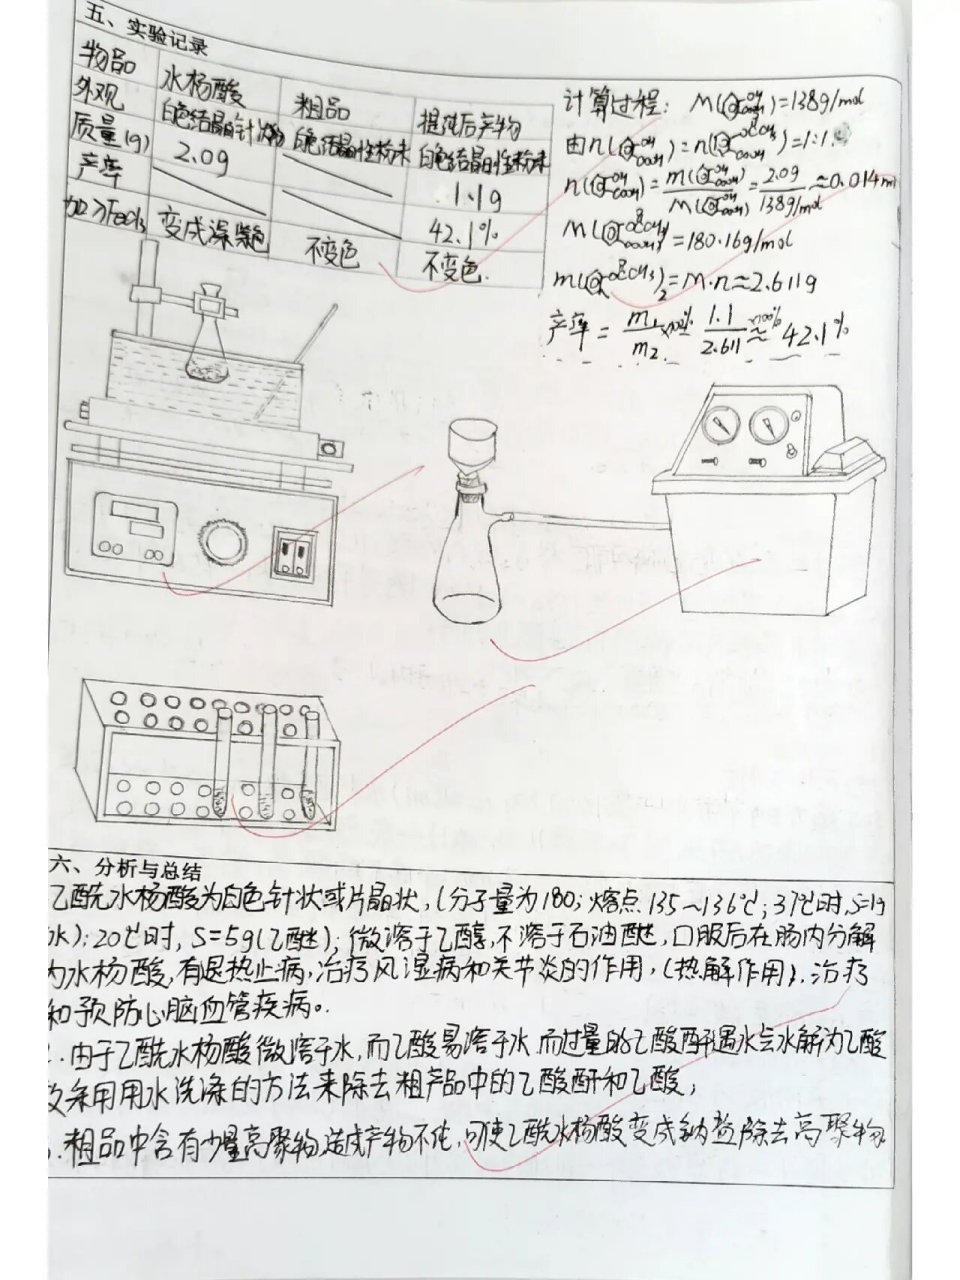 五、实验记录
物品 水杨酸 粗品 提纯后产物
外观 白色结晶的针状物 白色结晶性粉末 白色结晶的性粉末
质量(g) 2.0g 1.1g
产率 42.1%
加入FeCl₃ 变成深紫色 不变色 不变色.
计算过程: M( OH COOH)=138g/mol
由n( OH COOH)=n( OCCH₃ COOH)=1:1.
n( OH COOH)=m( OH COOH)/M( OH COOH)=2.0g/138g/mol≈0.014m
M( OCCH₃ COOH)=180.16g/mol
m( OCCH₃)₂=M·n≈2.611g
产率=m₁/m₂×100%=1.1/2.611×100%≈42.1%
六、分析与总结
乙酰水杨酸为白色针状或片晶状,(分子量为180;熔点135~136℃;37℃时,S=1g
水);20℃时,S=5g(乙醚);微溶于乙醇,不溶于石油醚,口服后在肠内分解
为水杨酸,有退热止病,治疗风湿病和关节炎的作用,(热解作用),治疗
和预防心脑血管疾病。
.由于乙酰水杨酸微溶于水,而乙酸易溶于水,而过量的乙酸酐遇水会水解为乙酸
故采用用水洗涤的方法来除去粗产品中的乙酸酐和乙酸;
.粗品中含有少量高聚物,造成产物不纯,可使乙酰水杨酸变成钠盐除去高聚物